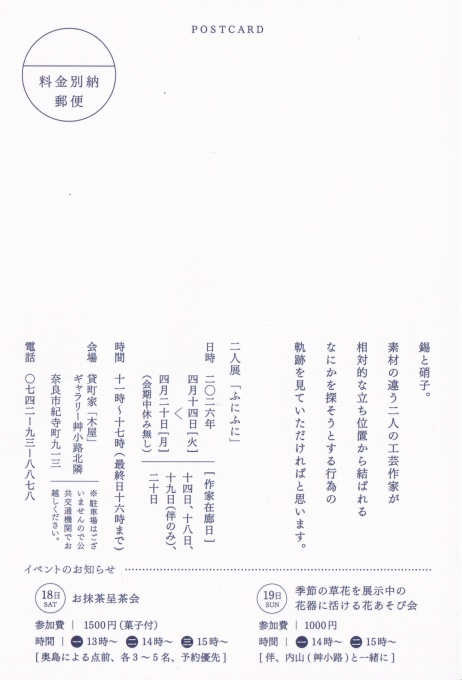 POSTCARD
料金別納
郵便
錫と硝子。
素材の違う二人の工芸作家が
相対的な立ち位置から結ばれる
なにかを探そうとする行為の
軌跡を見ていただければと思います。
二人展「ふにふに」
日時 二〇二六年
四月十四日[火]
〜
四月二十日[月]
(会期中休み無し)
[作家在廊日]
十四日、十八日、
十九日(伴のみ)、
二十日
時間 十一時〜十七時(最終日十六時まで)
会場 貸町家「木屋」
ギャラリー艸小路北隣
奈良市紀寺町九一三
※駐車場はござ
いませんので公
共交通機関でお
越しください。
電話 〇七四二ー九三ー八八七八
イベントのお知らせ
18日
SAT
お抹茶呈茶会
参加費 | 1500円(菓子付)
時間 | 一 13時〜 二 14時〜 三 15時〜
[奥島による点前、各3〜5名、予約優先]
19日
SUN
季節の草花を展示中の
花器に活ける花あそび会
参加費 | 1000円
時間 | 一 14時〜 二 15時〜
[伴、内山(艸小路)と一緒に]